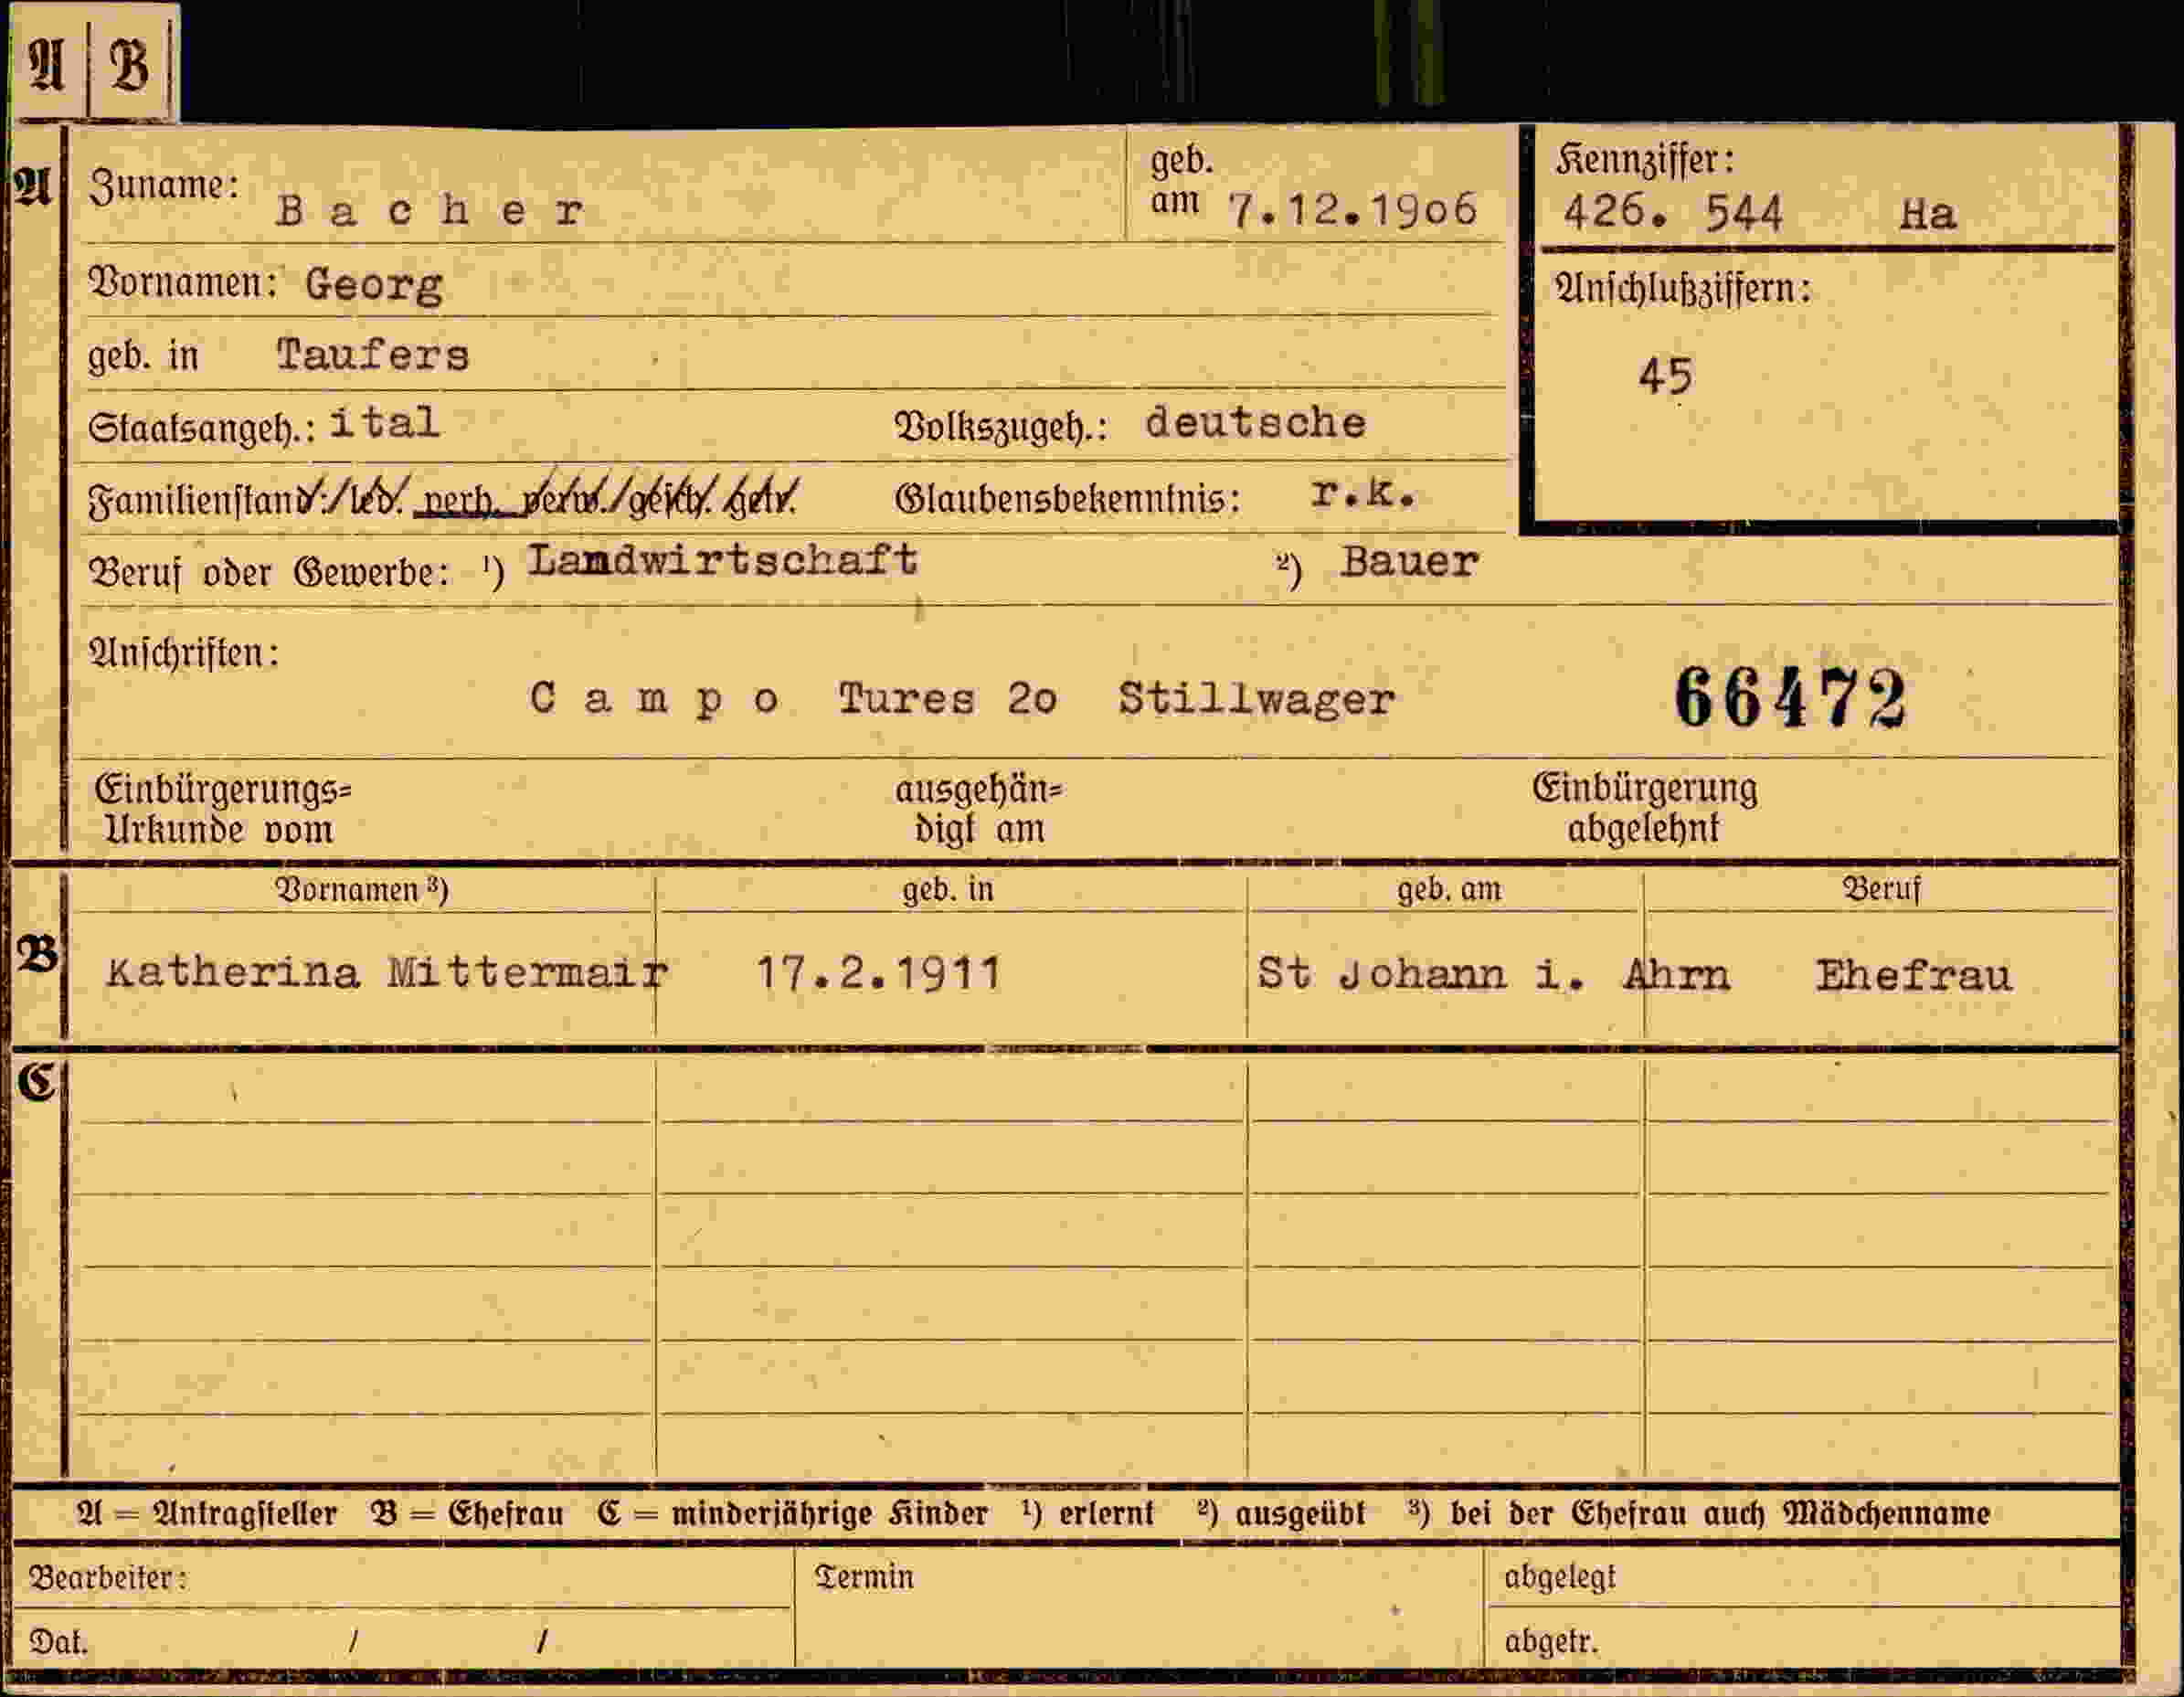 A B
A Zuname: Bacher geb. am 7.12.1906 Kennziffer: 426. 544 Ha
Vornamen: Georg Anschlußziffern:
geb. in Taufers 45
Staatsangeh.: ital Volkszugeh.: deutsche
Familienstand: led. verh. verw. gesch. getr. Glaubensbekenntnis: r.k.
Beruf oder Gewerbe: ¹) Landwirtschaft ²) Bauer
Anschriften:
Campo Tures 20 Stillwager 66472
Einbürgerungs= ausgehän= Einbürgerung
Urkunde vom digt am abgelehnt
Vornamen ³) geb. in geb. am Beruf
B Katherina Mittermair 17.2.1911 St Johann i. Ahrn Ehefrau
C
A = Antragsteller B = Ehefrau C = minderjährige Kinder ¹) erlernt ²) ausgeübt ³) bei der Ehefrau auch Mädchenname
Bearbeiter: Termin abgelegt
Dat. / / abgetr.